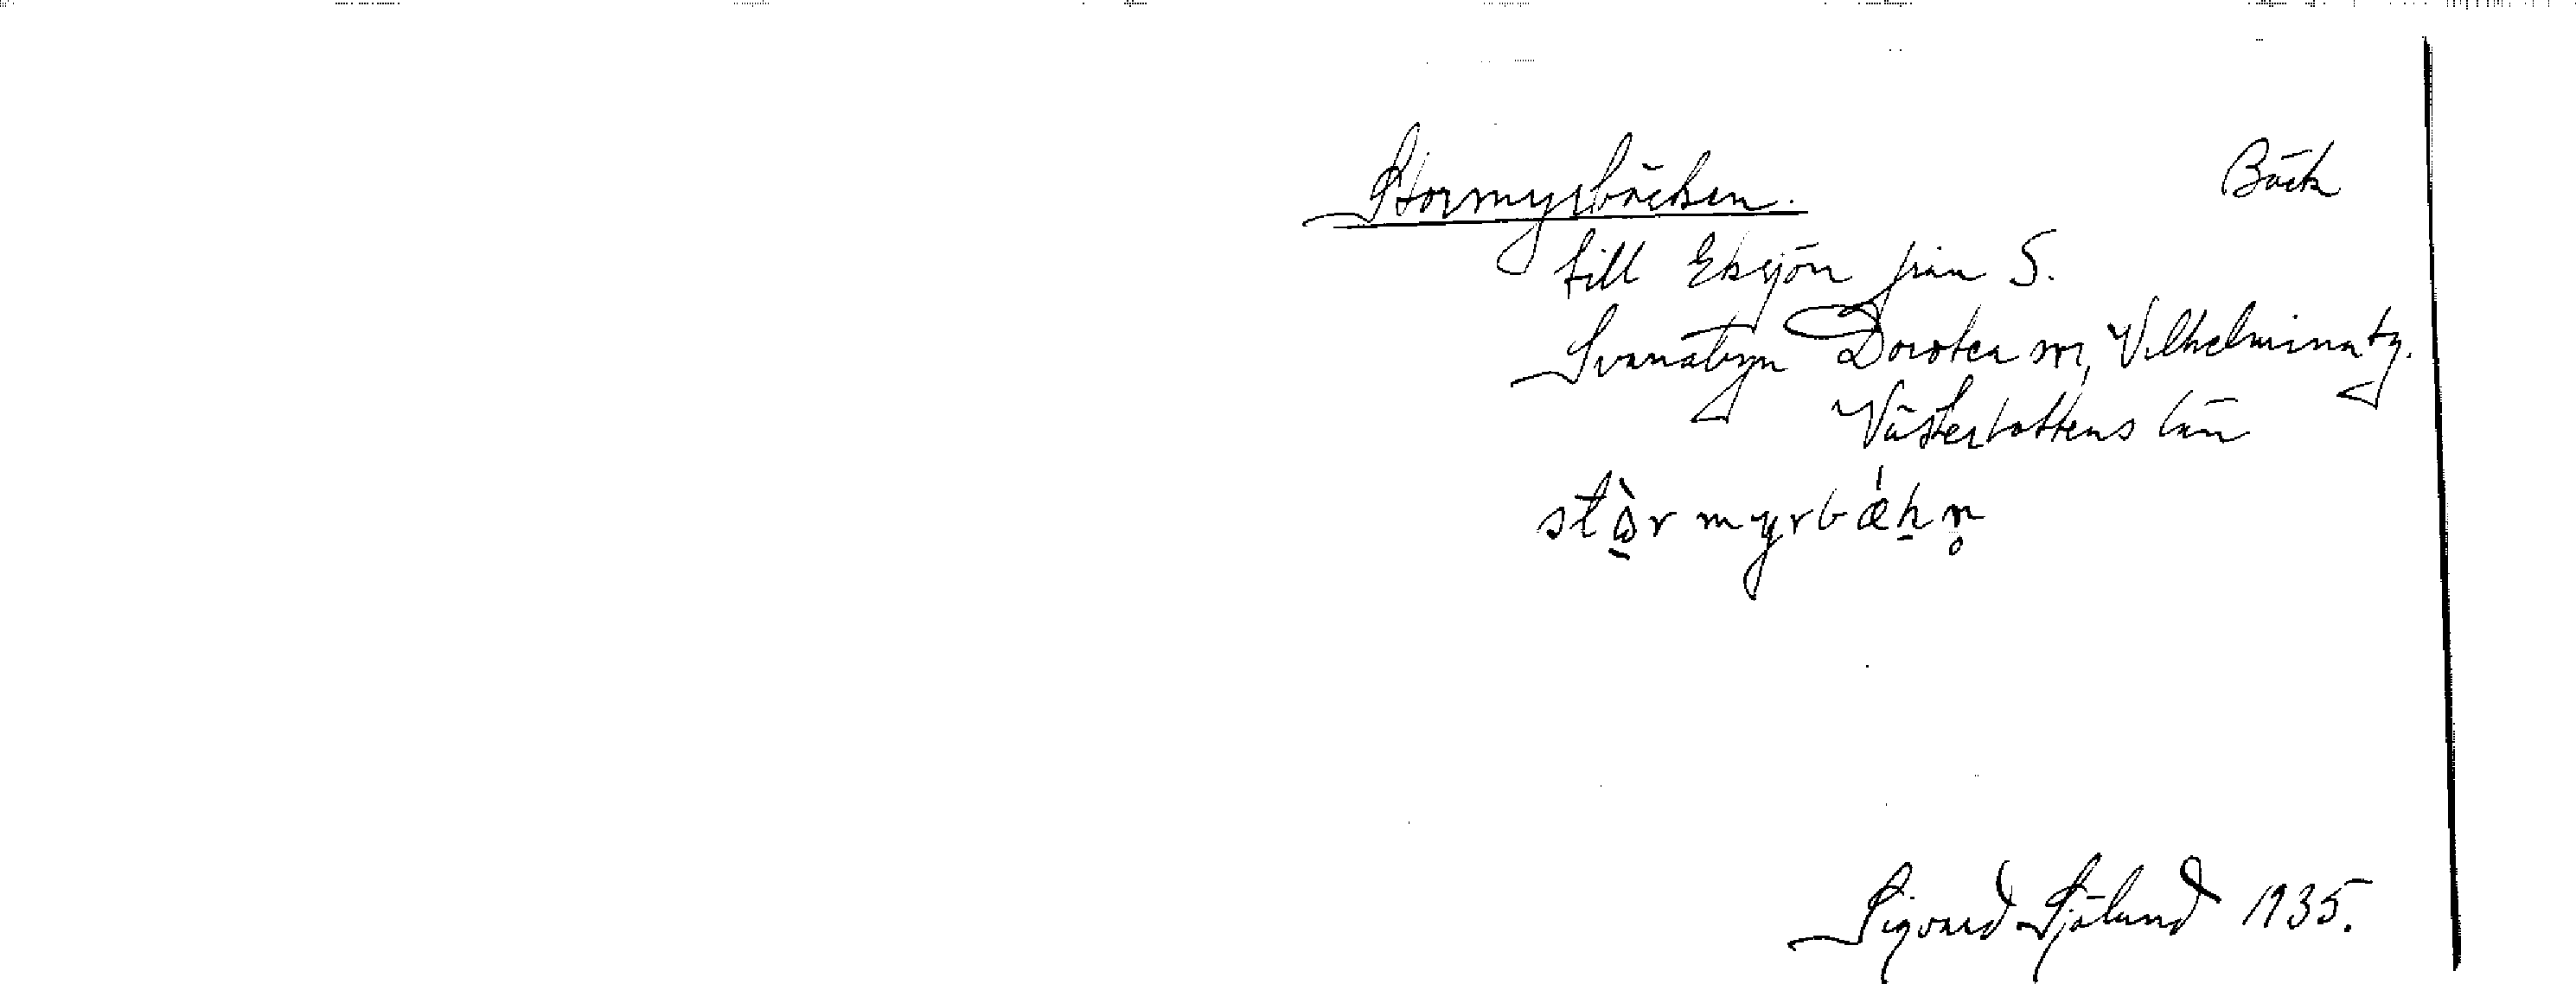 Stormyrbäcken. Bäck
till Eksjön från S.
Svanabyn Dorotea sn, Vilhelmina tg.
Västerbottens län
Sigvard Sjölund 1935.